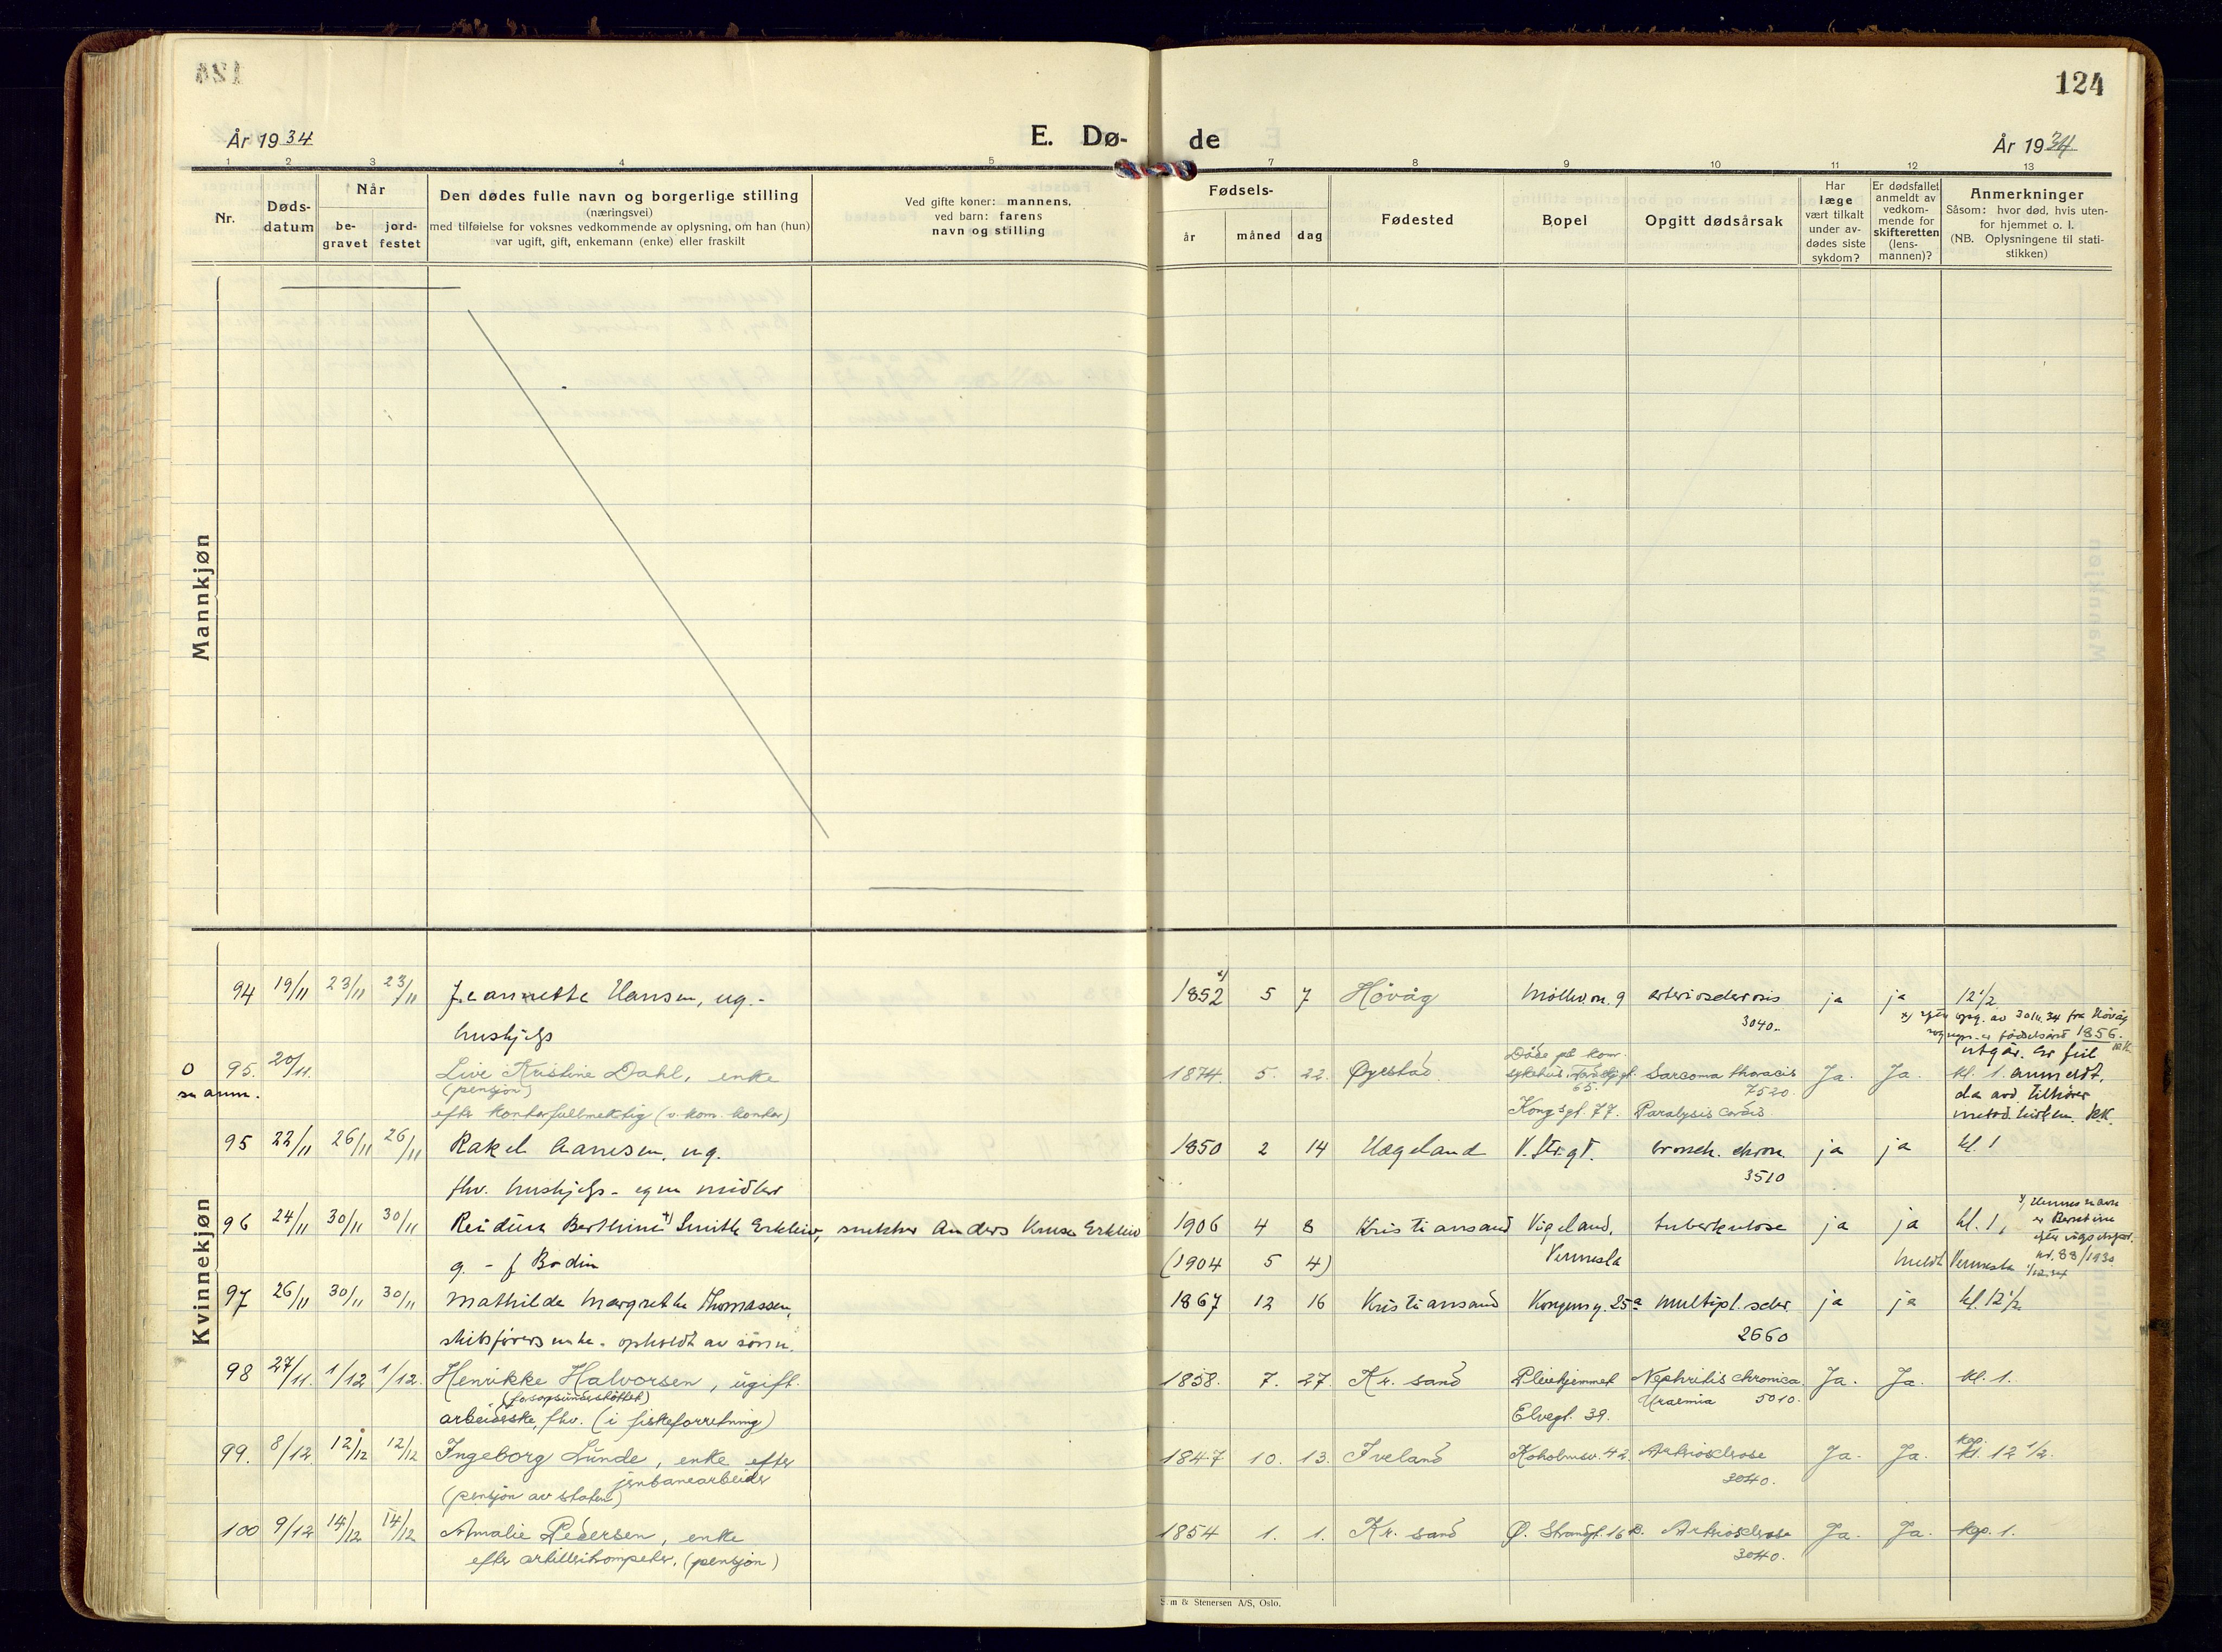 124
År 1934
E. Dø-
de
År 1934
1 2 3 4 5 7 8 9 10 11 12 13
Nr.
Døds-
datum
Når
be-
gravet
jord-
festet
Den dødes fulle navn og borgerlige stilling
(næringsvei)
med tilføielse for voksnes vedkommende av oplysning, om han (hun)
var ugift, gift, enkemann (enke) eller fraskilt
Ved gifte koner: mannens,
ved barn: farens
navn og stilling
Fødsels-
år
måned
dag
Fødested
Bopel
Opgitt dødsårsak
Har
læge
vært tilkalt
under av-
dødes siste
sykdom?
Er dødsfallet
anmeldt av
vedkom-
mende for
skifteretten
(lens-
mannen)?
Anmerkninger
Såsom: hvor død, hvis uten-
for hjemmet o. l.
(NB. Oplysningene til stati-
stikken)
Mannkjøn
Kvinnekjøn
94 19/11 23/11 23/11 Jeannette Hansen, ug.- 1852 5 7 Høvåg Møllev. 9 arteriosclerosis ja ja 12 1/2
hushjelp 3040.
fra Høvåg
er fødselsåret 1856.
0 95. 20/11. Live Kristine Dahl, enke 1874. 5. 22. Øyestad. Døde på kom.
sykehus 65. Sarcoma thoracis Ja. Ja. kl. 1. anmeldt,
se anm. (pensjon) 7520. da avd. tilhører
efter kontorfullmektig (v. kom. kontor) Kongsgt. 77. Paralysis cordis.
utgår. Er feil
95 22/11 26/11 26/11 Rakel Aanesen, ug. 1850 2 14 Hægeland V. Str.gt. bronch. chron. ja ja kl. 1
fhv. hushjelp - egne midler 3510
96 24/11 30/11 30/11 Reidun Berthine Smith Erkleiv, snekker Anders Kruse Erkleiv 1906 4 8 Kristiansand Vigeland, tuberkulose ja ja kl. 1,
g. - f Bodin (1904 5 4) Vennesla meldt Vennesla
Hennes navn
er Berntine
nr. 88/1930
97 26/11 30/11 30/11 Mathilde Margrethe Thomassen, 1867 12 16 Kristiansand Kongensg. 25a multipl. scler. ja ja kl. 12 1/2
skibsførers enke. opholdt av sønn. 2660
98 27/11. 1/12 1/12. Henrikke Halvorsen, ugift. 1858. 7. 27. Kr. sand Pleiehjemmet Nephritis chronica Ja. Ja. kl. 1.
(forsorgsunderstøttet) Uraemia 5010.
arbeiderske, fhv. (i fiskeforretning) Elvegt. 39.
99. 8/12 12/12 12/12 Ingeborg Lunde, enke efter 1847 10. 13. Iveland Koholmsv. 42. Arteriosclerose Ja. Ja. kap. kl. 12 1/2.
jernbanearbeider 3040.
(pensjon av staten)
100 9/12 14/12 14/12 Amalie Pedersen, enke 1854 1. 1. Kr. sand Ø. Strandgt. 16 B. Arteriosclerose Ja. Ja. kap. 1.
efter artilleritrompeter, (pensjon) 3040.
& Stenersen A/S, Oslo.